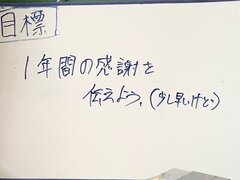 目標
1年間の感謝を
伝えよう。(少し早いけど)